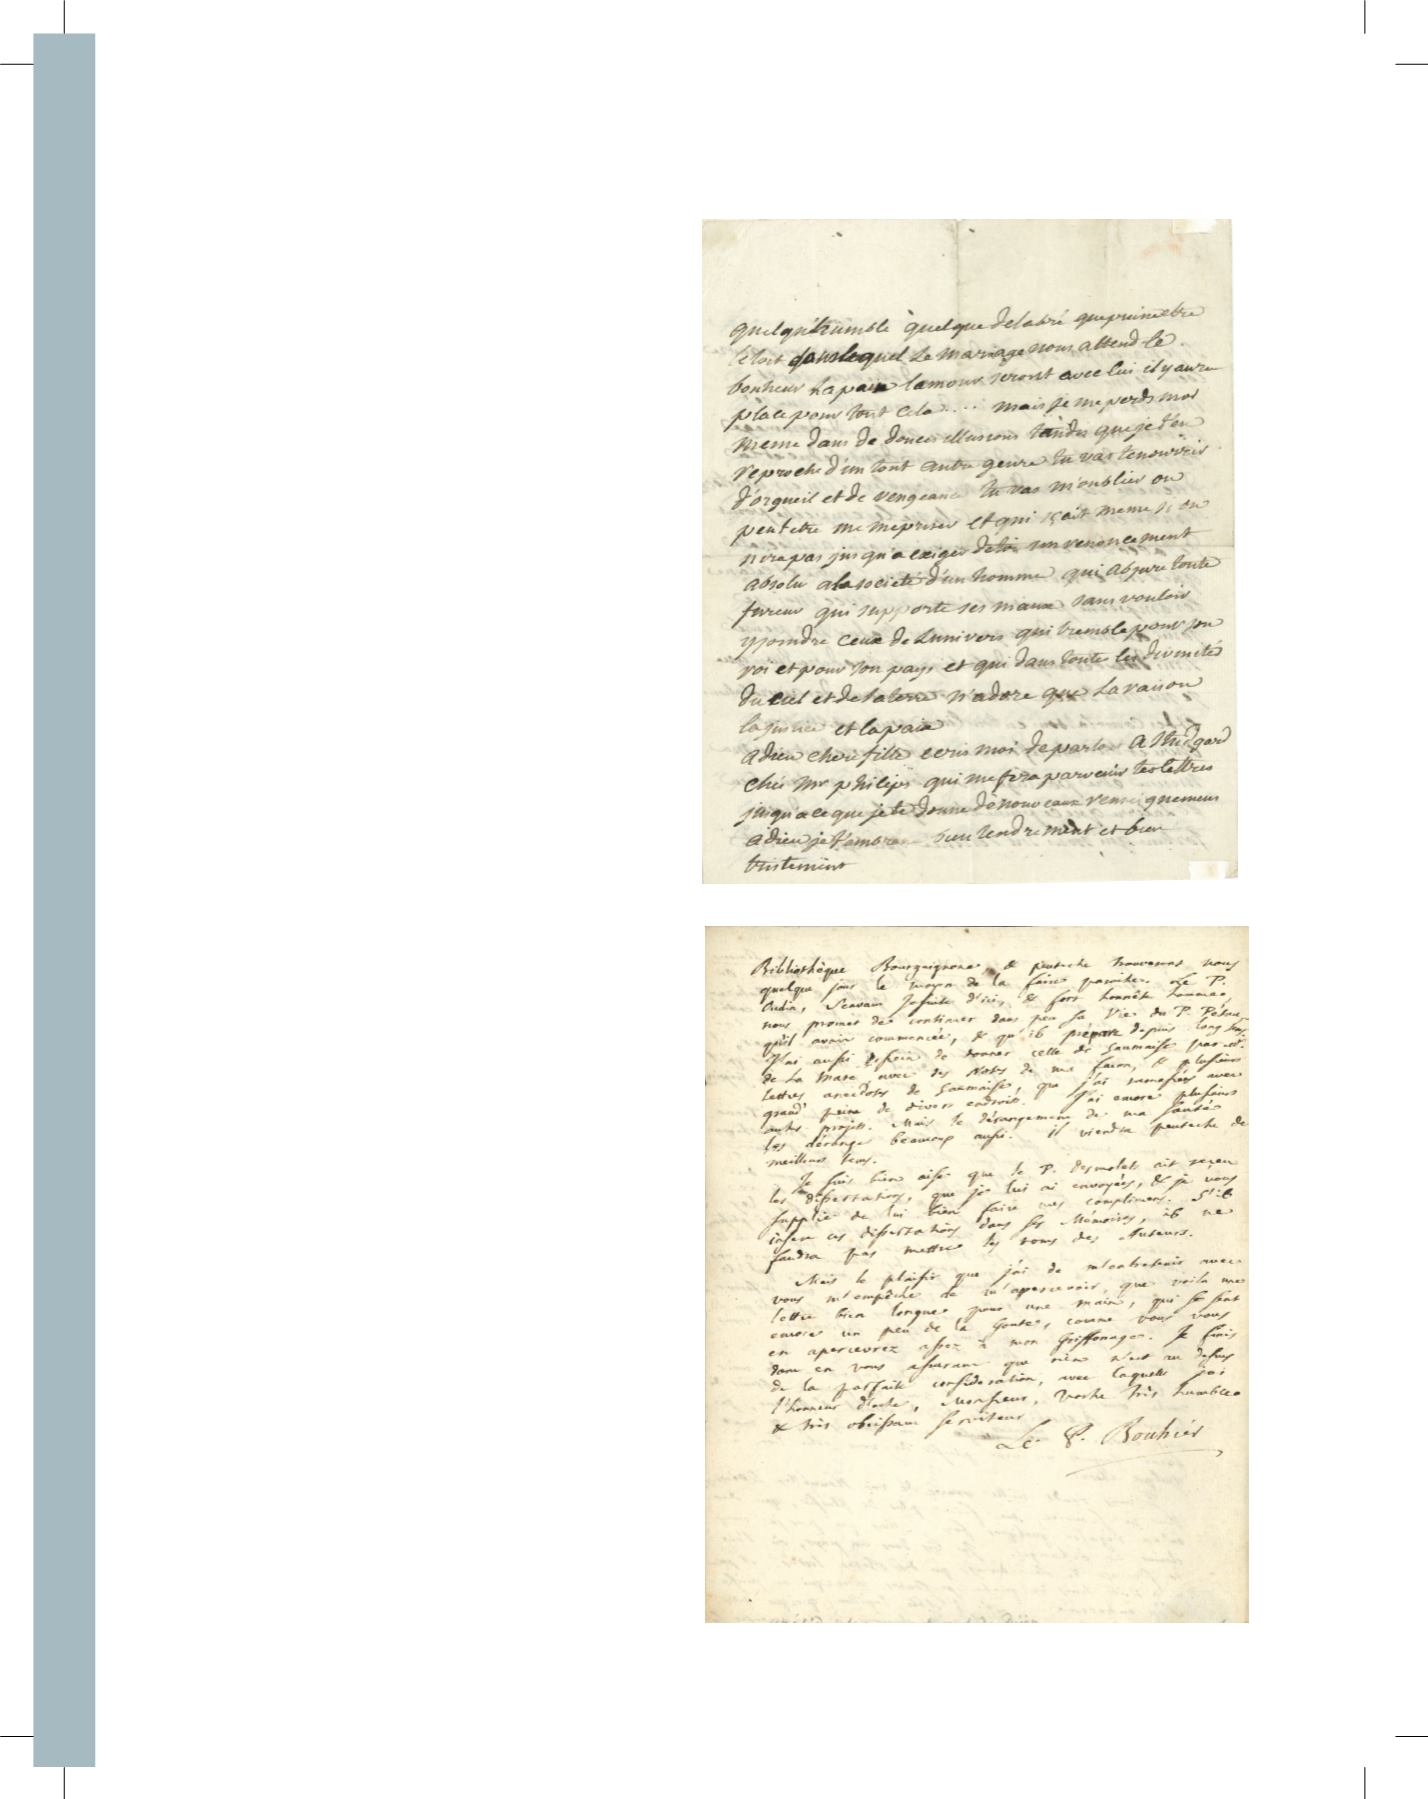 quelqu'humble quelque delabré que puisse etre
le toit dans lequel le mariage nous attend le
bonheur la paix lamour seront avec lui il y aura
place pour tout cela .... mais je me perds moi
meme dans de douces illusions tandis que je t'en
reproche d'un tout autre genre tu vas te nourrir
d'orgueil et de vengeance tu vas m'oublier ou
peut etre me mepriser et qui sçait meme si on
n'ira pas jusqu'a exiger de toi un renoncement
absolu a la societé d'un homme qui abjure toute
fureur qui supporte ses maux sans vouloir
y joindre ceux de Lunivers qui tremble pour son
roi et pour son pays et qui dans toutes les divinités
du ciel et de la terre n'adore que La raison
la justice et la paix
adieu chere fille ecris moi de par la a Studgard
chéz Mr philips qui me fera parvenir tes lettres
jusqu'a ce que je te donne de nouveaux renseignemens
adieu je t'embrasse bien tendrement et bien
tristement
Bibliothèque Bourguignone, & peutestre trouverons nous
quelque jour le moyen de la faire paroitre. Le P.
Oudin, Sçavant Jesuite d'ici, & fort honnête homme,
nous promet de continuer dans peu la Vie du P. Pétau,
qu'il avoit commencée, & qu'il prépare depuis long tems.
J'ai aussi dessein de donner celle de Saumaise par M.
de La Mare avec des Notes de ma façon, & plusieurs
lettres anecdotes de Saumaise, que j'ai ramassées avec
grand' peine de divers endroits. J'ai encore plusieurs
autres projets. Mais le dérangement de ma santé
les dérange beaucoup aussi. Il viendra peutestre de
meilleurs tems.
Je suis bien aise que le P. Desmolets ait reçeu
les dissertations, que je lui ai envoyées, & je vous
supplie de lui bien faire mes complimens. S'il
insere ces dissertations dans ses Mémoires, il ne
faudra pas mettre les noms des Auteurs.
Mais le plaisir que j'ai de m'entretenir avec
vous m'empêche de m'apercevoir, que voila une
lettre bien longue pour une main, qui se sent
encore un peu de la Goute, comme vous vous
en apercevrez assez à mon Griffonage. Je finis
donc en vous assurant que rien n'est au dessus
de la parfaite consideration, avec laquelle j'ai
l'honneur d'estre, Monsieur, Vostre très humble
& très obeissant serviteur
Le P. Bouhier